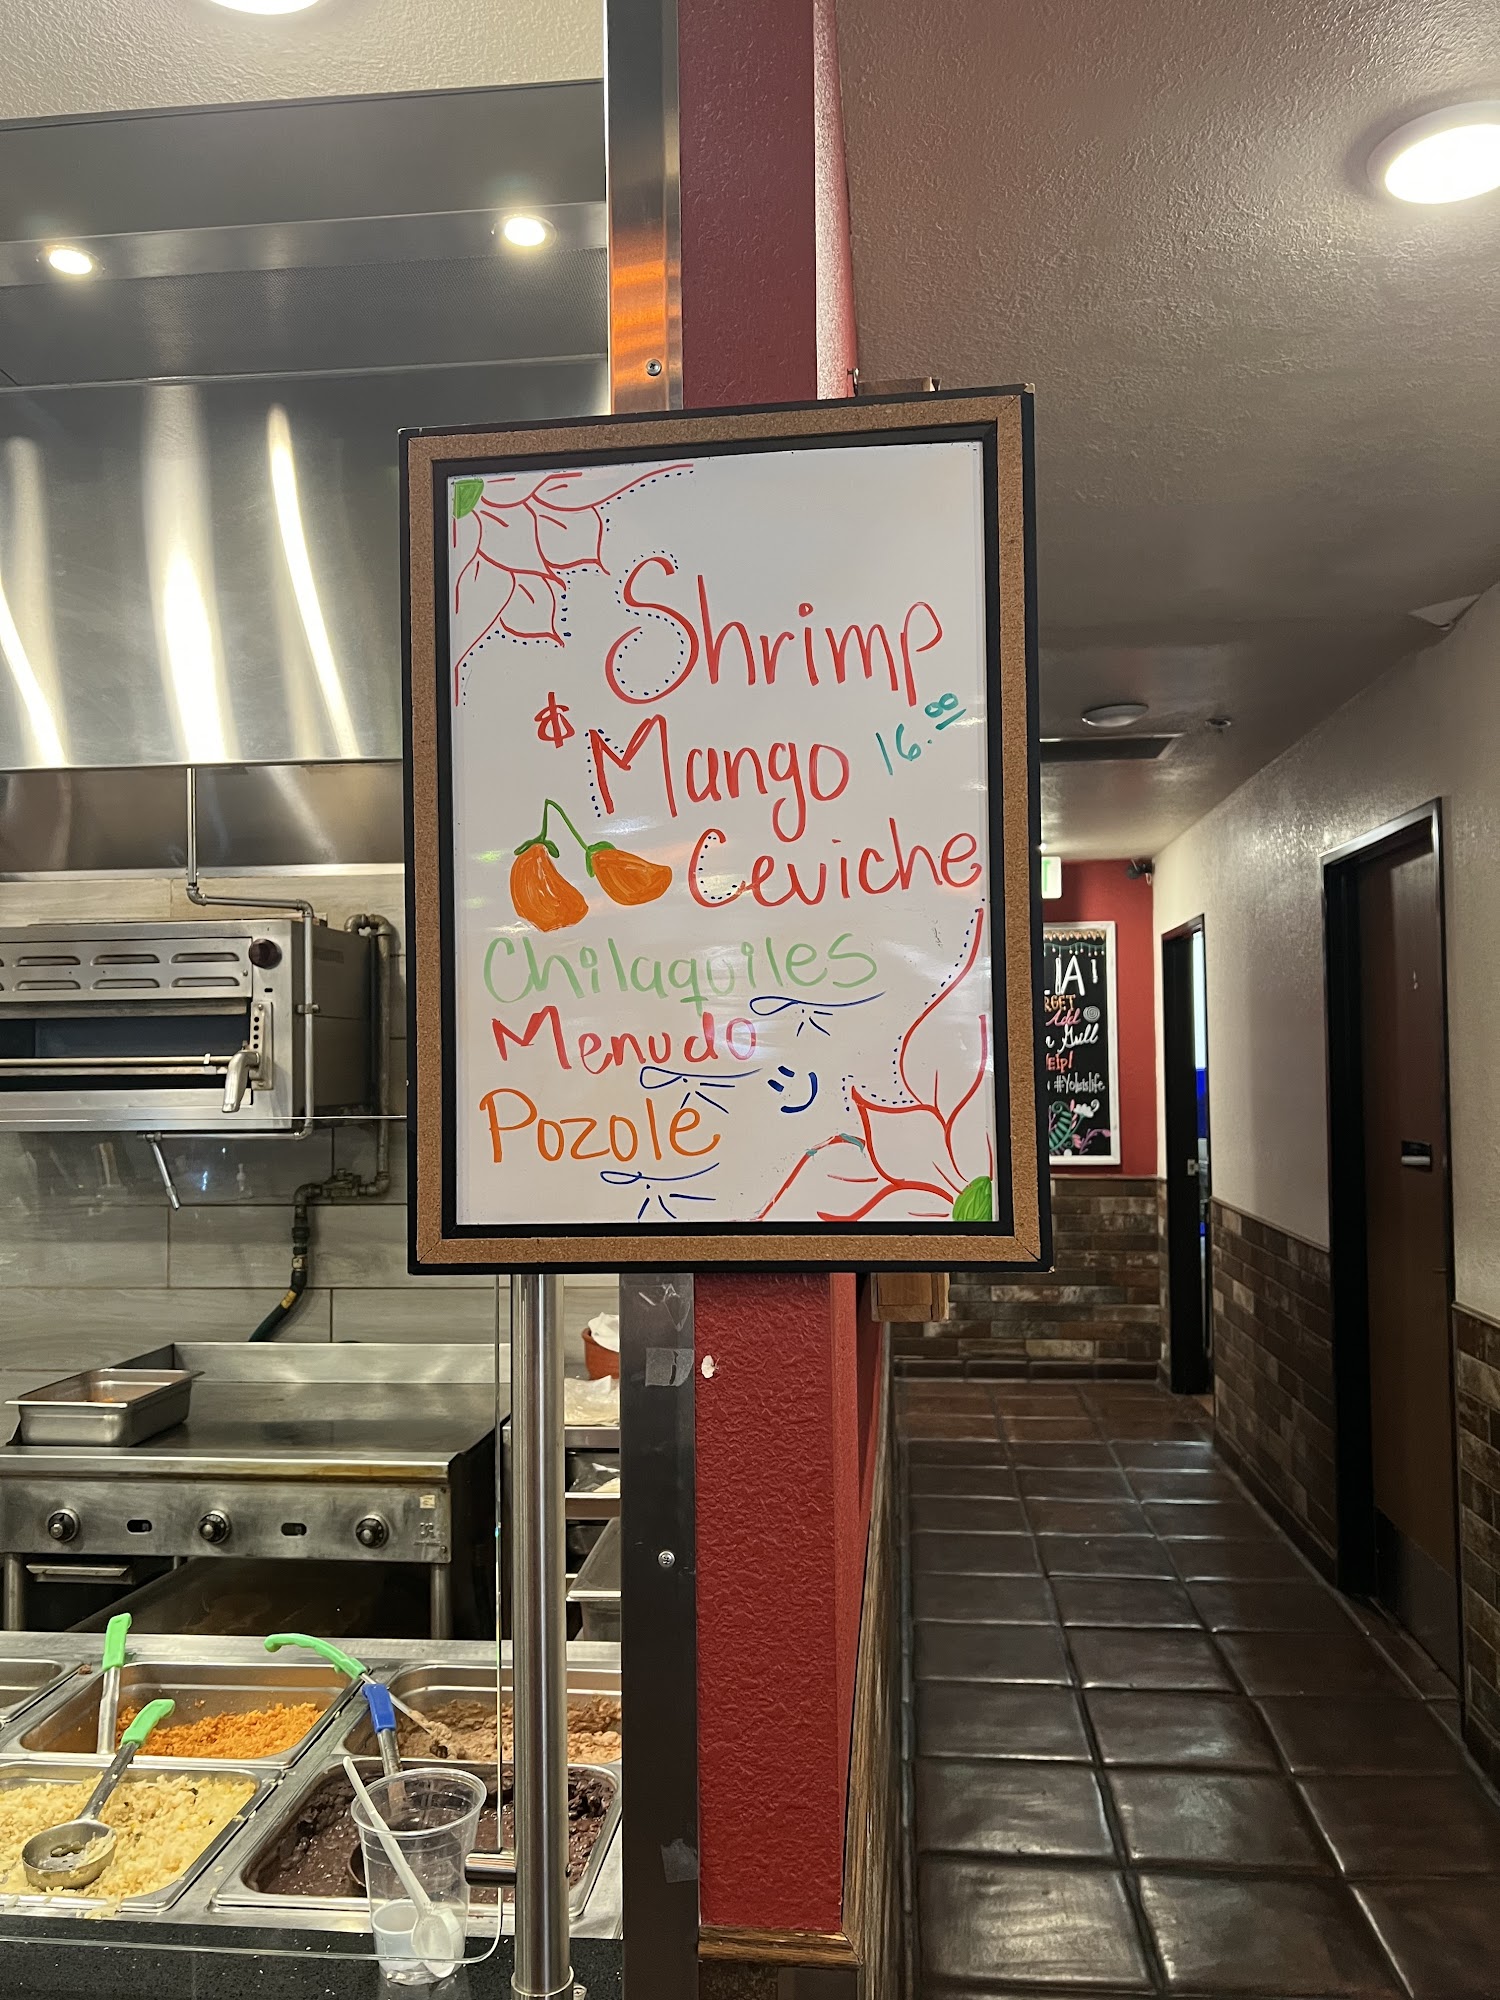 Shrimp
& Mango 16.00
Ceviche
Chilaquiles
Menudo
Pozole
IA!
RGET
Add
Grill
elp!
#Yolislife